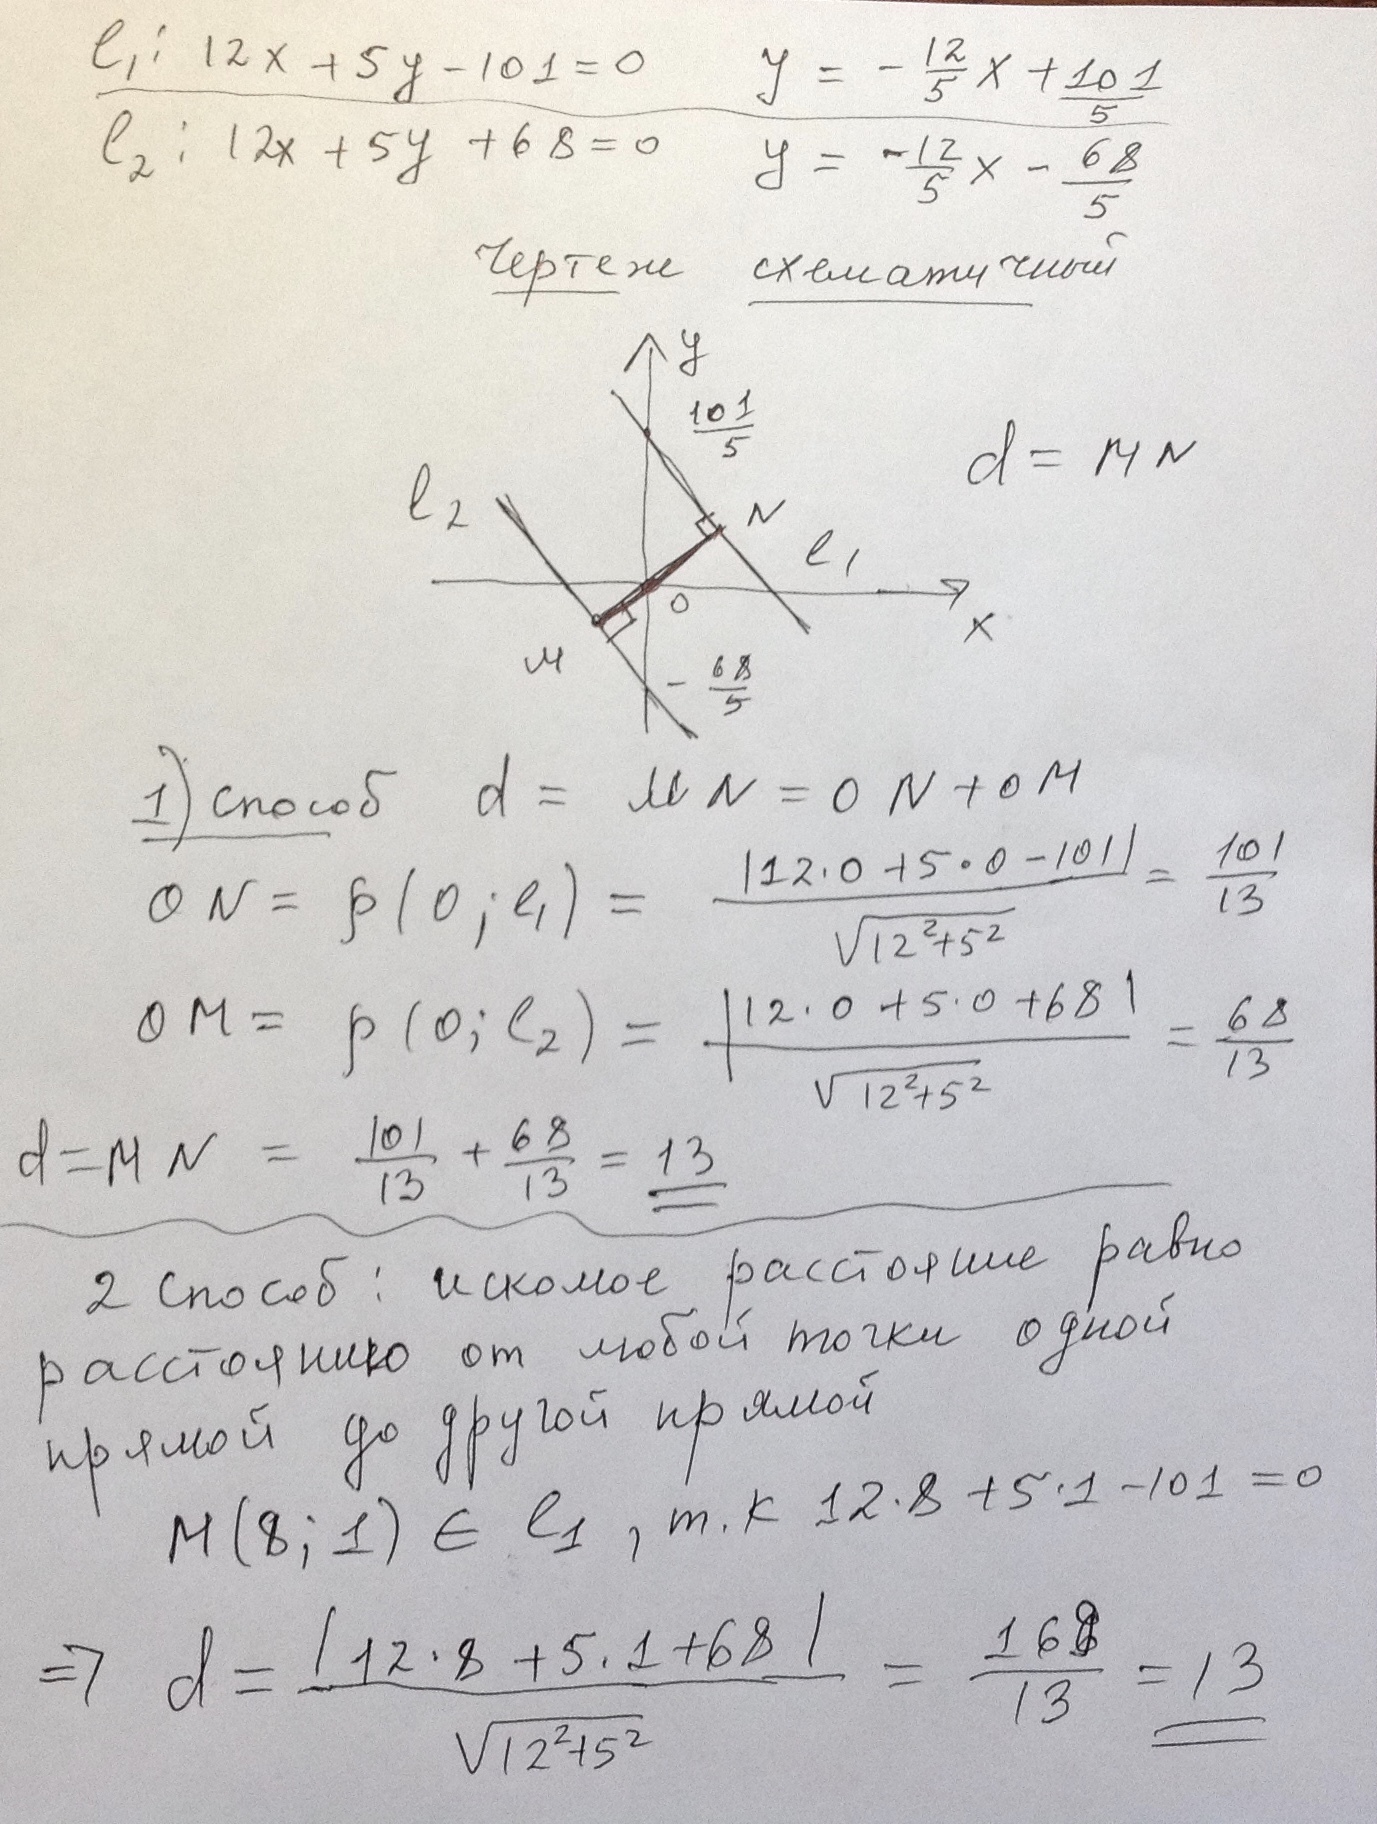 l₁: 12x + 5y - 101 = 0 y = - 12/5 x + 101/5
l₂: 12x + 5y + 68 = 0 y = - 12/5 x - 68/5
Чертеж схематичный
y
101/5
d = MN
l₂
N
l₁
0
x
M
- 68/5
1) способ d = MN = ON + OM
ON = ρ(0; l₁) = |12·0 + 5·0 - 101| / √12²+5² = 101/13
OM = ρ(0; l₂) = |12·0 + 5·0 + 68| / √12²+5² = 68/13
d = MN = 101/13 + 68/13 = 13
2 способ: искомое расстояние равно
расстоянию от любой точки одной
прямой до другой прямой
M(8; 1) ∈ l₁, т.к 12·8 + 5·1 - 101 = 0
⇒ d = |12·8 + 5·1 + 68| / √12²+5² = /13 = 13